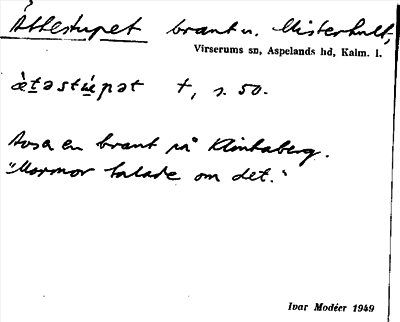 Ättestupet brant n. Misterhult,
Virserums sn, Aspelands hd, Kalm. l.
ä̀t̲əstú̲pət †, s. 50.
brant på Klintaberg.
"Mormor talade om det."
Ivar Modéer 1949